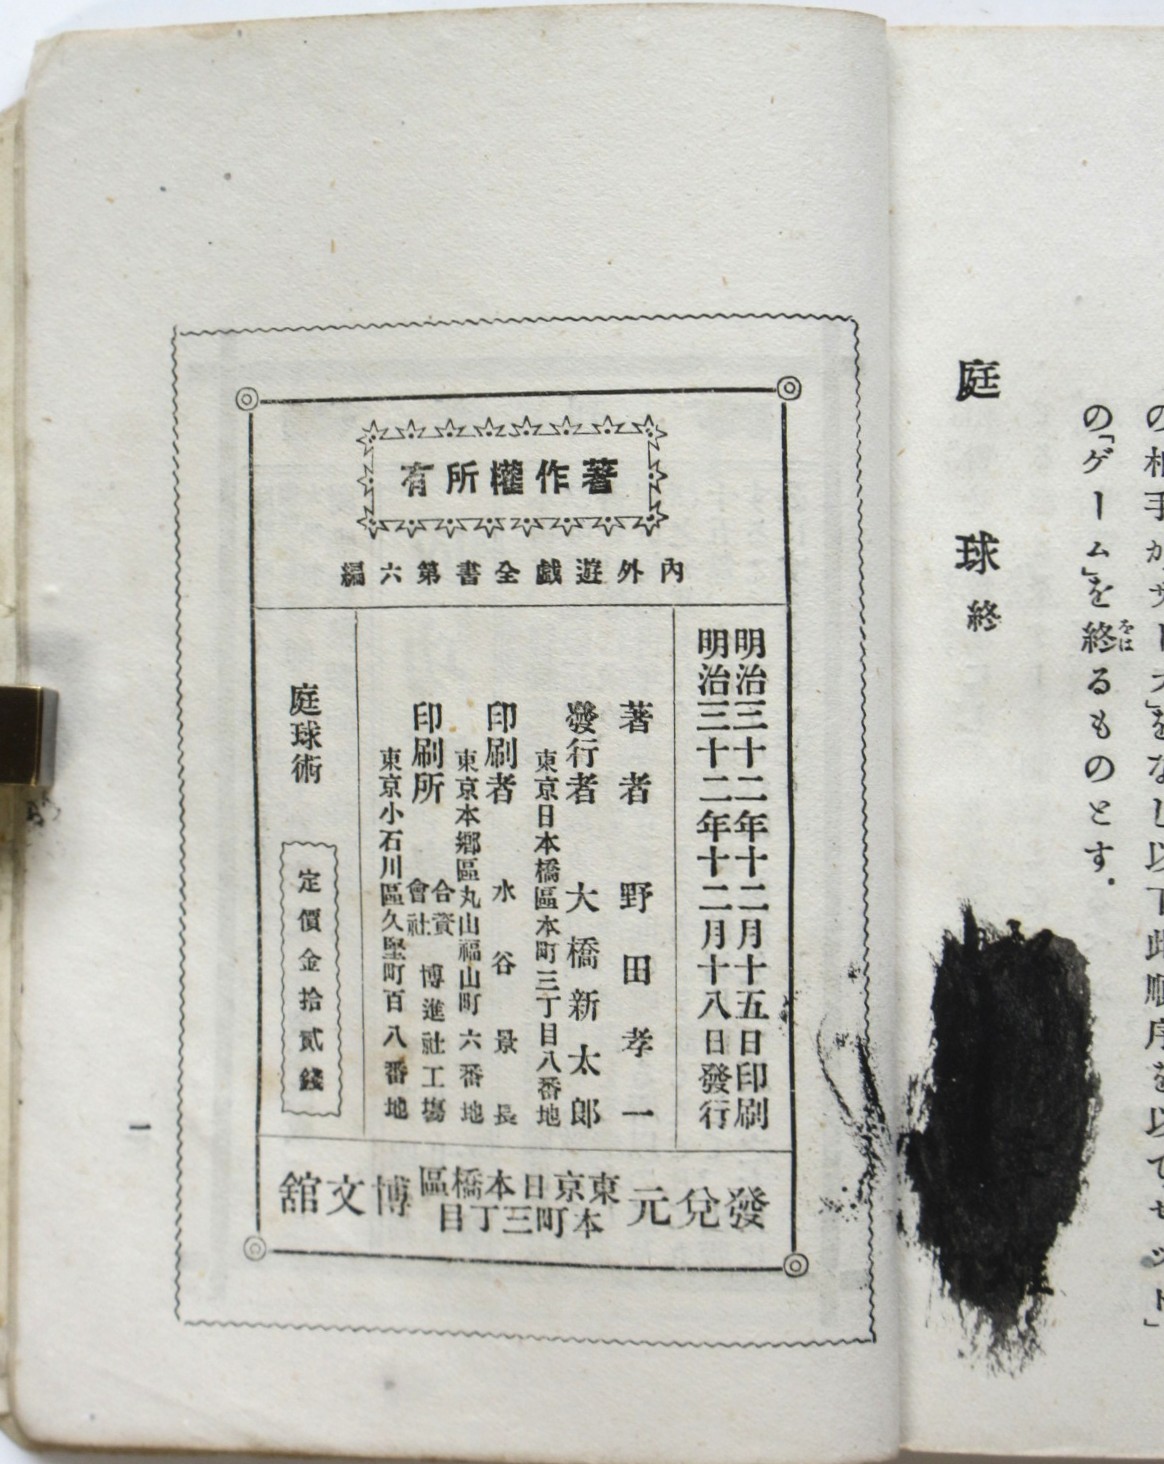 の「ゲーム」を終るものとす.
をは
庭球終
著作權所有
內外遊戯全書第六編
明治三十二年十二月十五日印刷
明治三十二年十二月十八日發行
著者 野田孝一
發行者 大橋新太郎
東京日本橋區本町三丁目八番地
印刷者 水谷景長
東京本鄉區丸山福山町六番地
印刷所 合資會社 博進社工塲
東京小石川區久堅町百八番地
庭球術
定價金拾貳錢
發兌元 東京日本橋區本町三丁目 博文舘
一